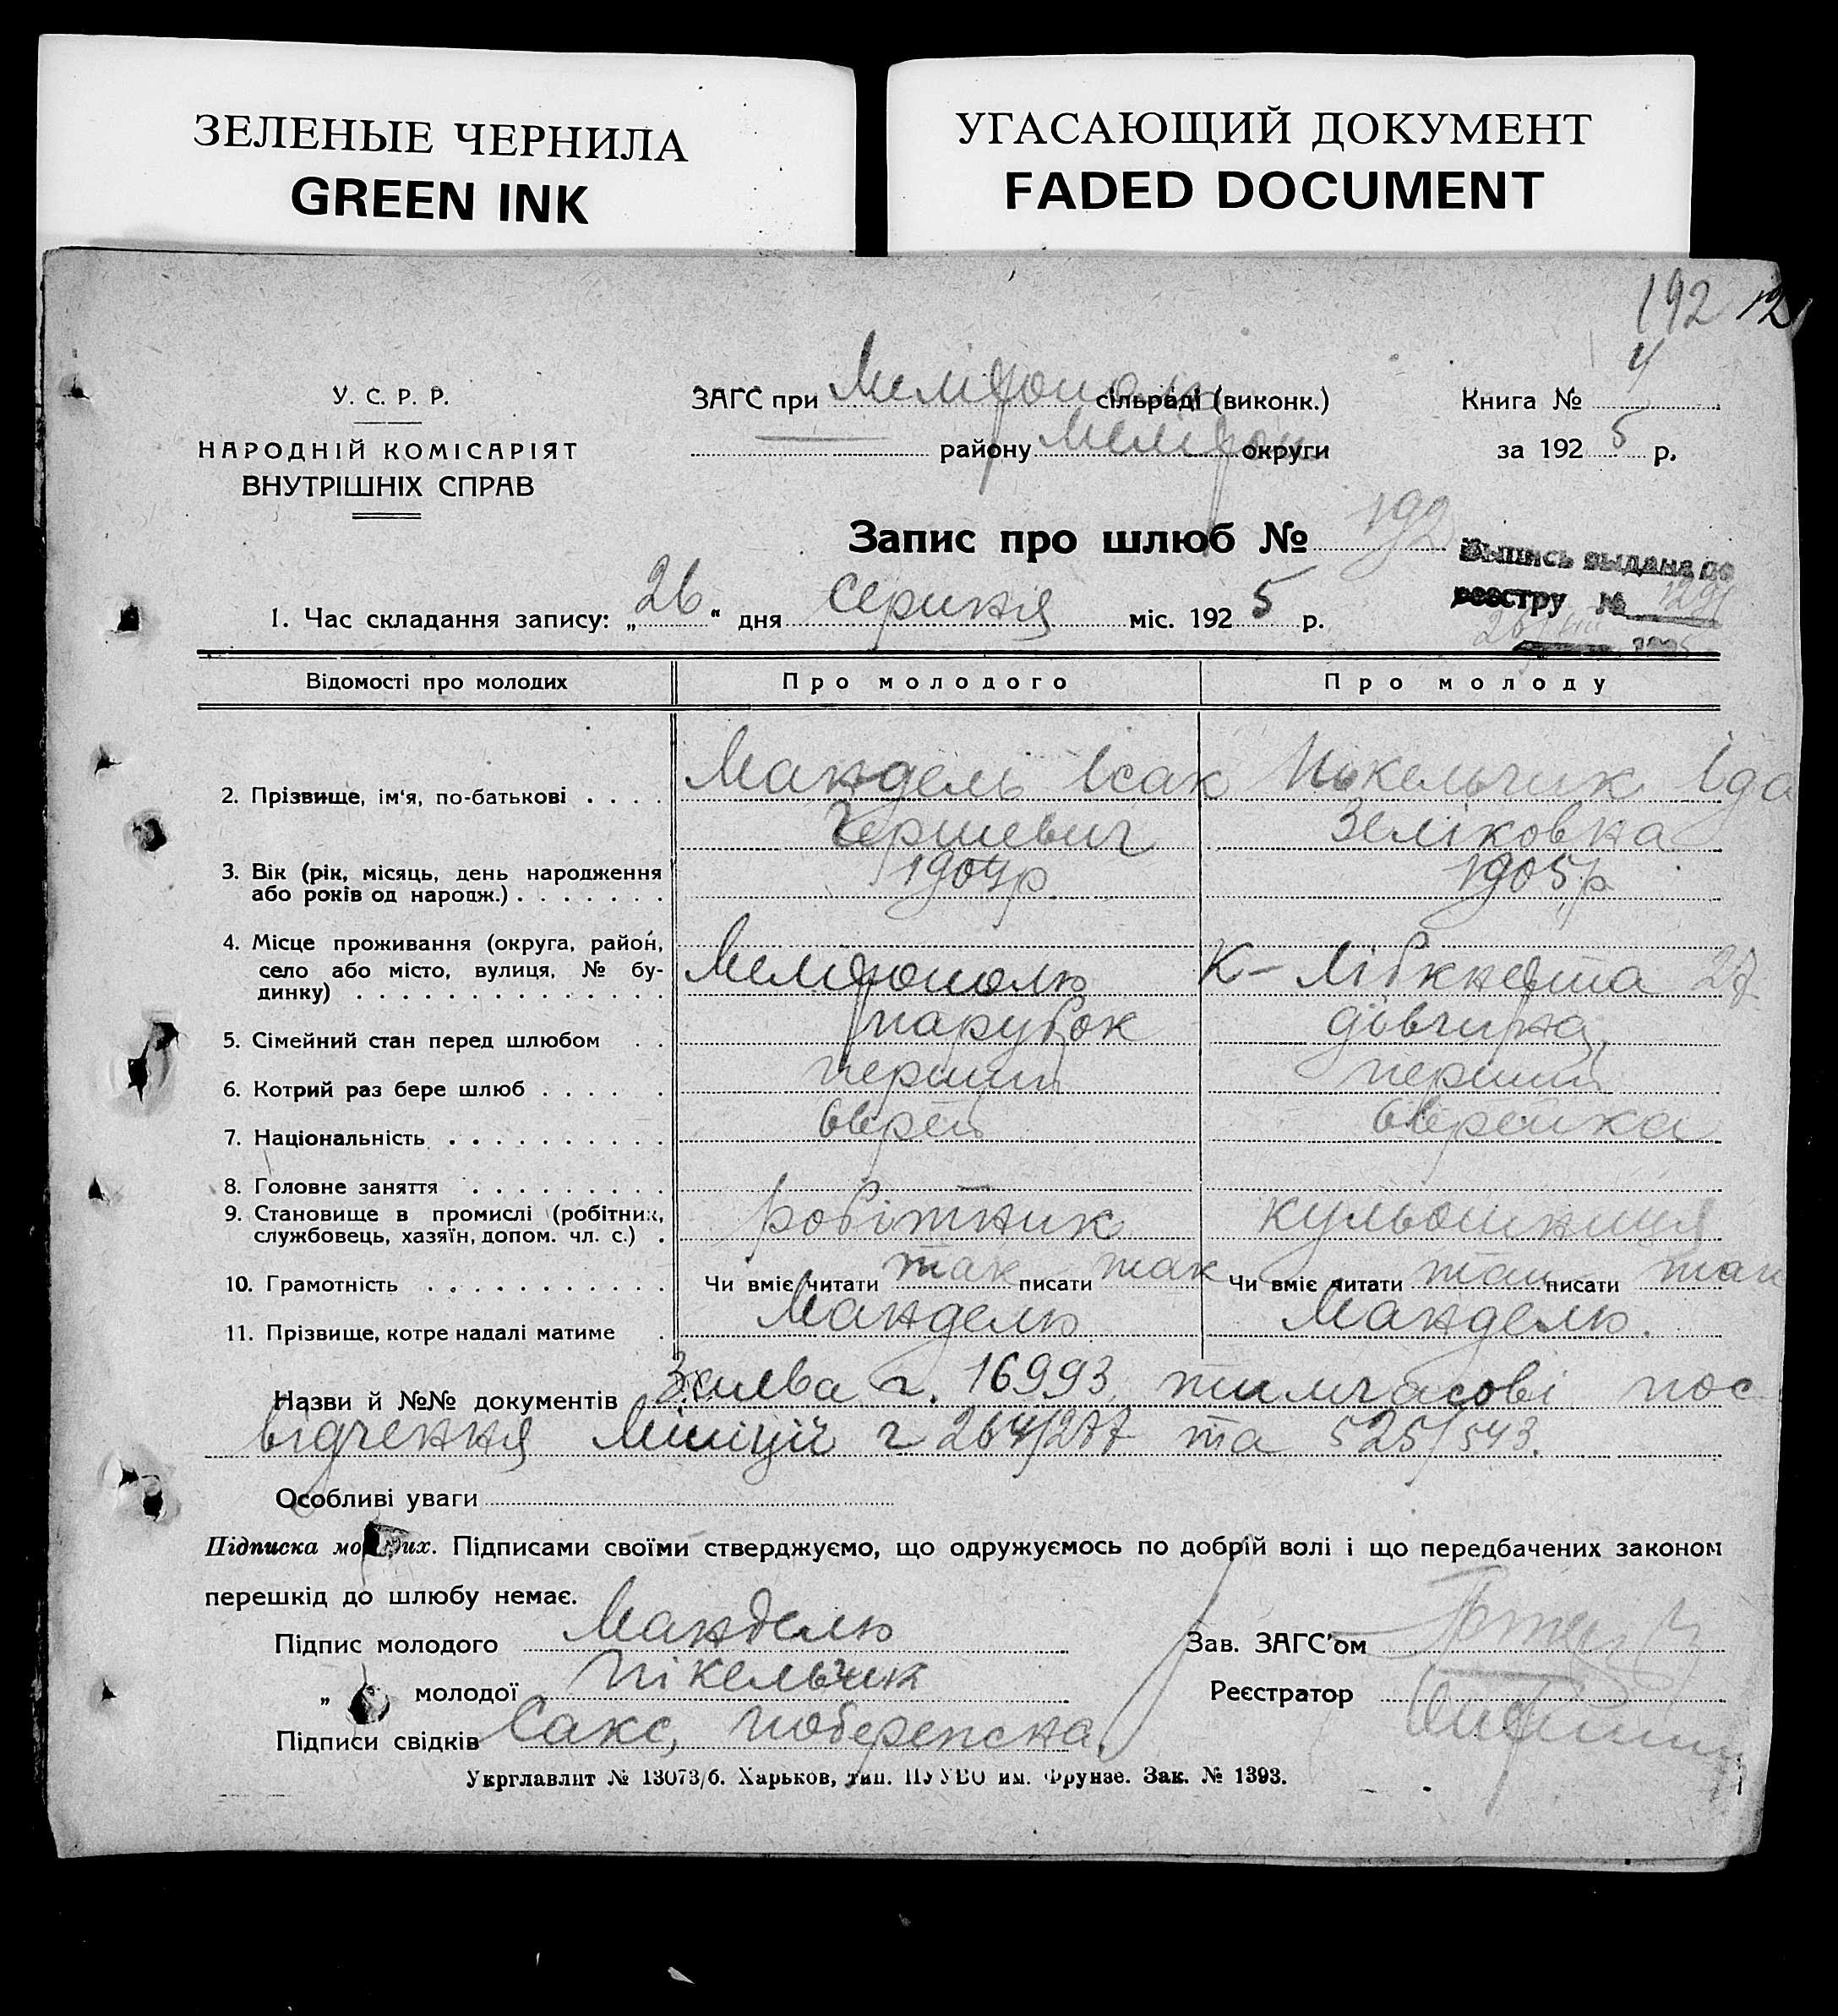 ЗЕЛЕНЫЕ ЧЕРНИЛА
GREEN INK
УГАСАЮЩИЙ ДОКУМЕНТ
FADED DOCUMENT
192
У. С. Р. Р.
НАРОДНІЙ КОМІСАРІЯТ
ВНУТРІШНІХ СПРАВ
ЗАГС при Мелітополь сільраді (виконк.)
району Мелітоп округи
Книга № 4
за 1925 р.
Запис про шлюб № 192
Выпись выдана по
реестру №
1. Час складання запису: „26" дня Серпня міс. 1925 р.
Відомості про молодих Про молодого Про молоду
2. Прізвище, ім'я, по-батькові . . . . Мандель Ісак Пікельчик Іда
Гершевич Зеліковна
3. Вік (рік, місяць, день народження 1904р 1905р
або років од народж.) . . . . . . .
4. Місце проживання (округа, район,
село або місто, вулиця, № бу- Мелітополь К-Лібкнехта 27
динку) . . . . . . . . . . . . . .
5. Сімейний стан перед шлюбом . . парубок дівчина
6. Котрий раз бере шлюб . . . . . перший перший
7. Національність . . . . . . . . . . Єврей Єврейка
8. Головне заняття . . . . . . . . . —
9. Становище в промислі (робітник, робітник
службовець, хазяїн, допом. чл. с.) .
10. Грамотність . . . . . . . . . . . Чи вміє читати так писати так Чи вміє читати так писати так
11. Прізвище, котре надалі матиме . Мандель Мандель.
Назви й №№ документів Заява ч. 16993, тимчасові пос
відчення Міліції ч 264/277 та 525/543.
Особливі уваги
Підписка молодих. Підписами своїми стверджуємо, що одружуємось по добрій волі і що передбачених законом
перешкід до шлюбу немає.
Підпис молодого Мандель Зав. ЗАГС'ом
„ молодої Пікельчик Реєстратор
Підписи свідків Сакс,
Укрглавліт № 13073/б. Харьков, тип. ПУУВО им. Фрунзе. Зак. № 1393.